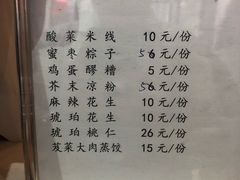 酸菜米线 10元/份
蜜枣粽子 56元/份
鸡蛋醪糟 5元/份
芥末凉粉 56元/份
麻辣花生 10元/份
琥珀花生 10元/份
琥珀桃仁 26元/份
芨菜大肉蒸饺 15元/份